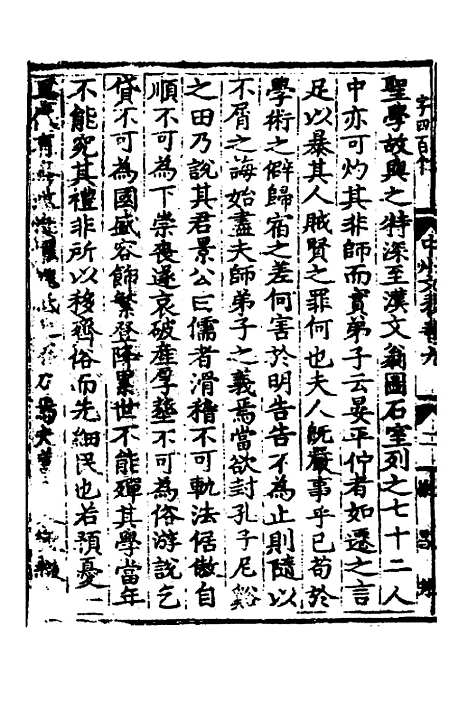 字四百个
中州文表卷九
聖學故與之特深至漢文翁圖石室列之七十二人
中亦可灼其非師而實弟子云晏平仲者如遷之言
足以暴其人賊賢之罪何也夫人既嚴事乎已苟於
學術之僻歸宿之差何害於明告告不為止則隨以
不屑之誨始盡夫師弟子之義焉當欲封孔子尼谿
之田乃說其君景公曰儒者滑稽不可軌法倨傲自
順不可為下崇喪遂哀破產厚塟不可為俗游說乞
貸不可為國盛容飾繁登降累世不能殫其學當年
不能究其禮非所以移齊俗而先細民也若預憂